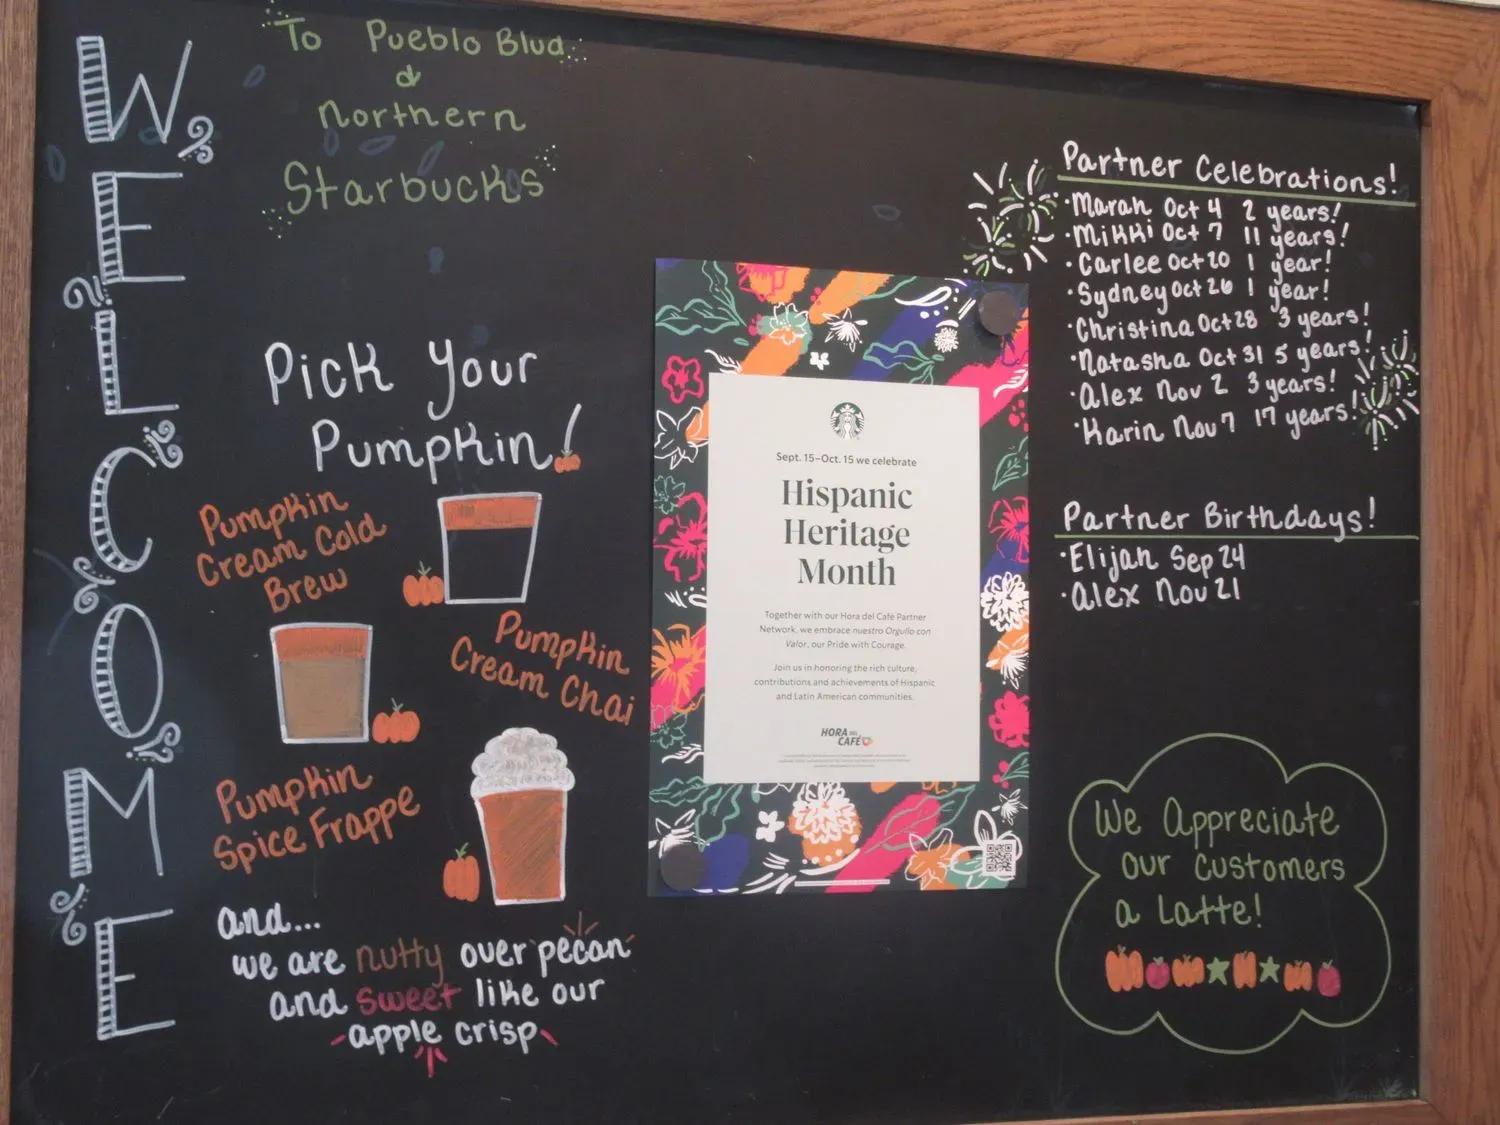 WELCOME
To Pueblo Blvd
&
Northern
Starbucks
Pick Your
Pumpkin!
Pumpkin
Cream Cold
Brew
Pumpkin
Cream Chai
Pumpkin
Spice Frappe
and...
we are nutty over pecan
and sweet like our
apple crisp
Sept. 15–Oct. 15 we celebrate
Hispanic
Heritage
Month
Together with our Hora del Café Partner
Network, we embrace nuestro Orgullo con
Valor, our Pride with Courage.
Join us in honoring the rich culture,
contributions and achievements of Hispanic
and Latin American communities.
HORA DEL
CAFÉ
Partner Celebrations!
· Marah Oct 4 2 years!
· Mikki Oct 7 11 years!
· Carlee Oct 20 1 year!
· Sydney Oct 26 1 year!
· Christina Oct 28 3 years!
· Natasha Oct 31 5 years!
· Alex Nov 2 3 years!
· Karin Nov 7 17 years!
Partner Birthdays!
· Elijah Sep 24
· Alex Nov 21
We Appreciate
our customers
a Latte!